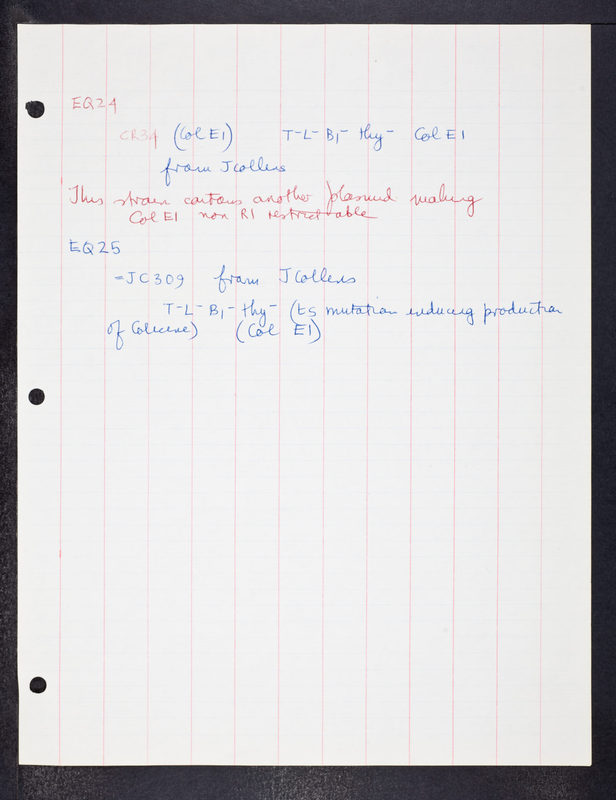 EQ24
CR34 (Col E1) T-L- B1- thy- Col E1
from J Collins
This strain contains another plasmid making
Col E1 non R1 restrictable
EQ25
= JC309 from J Collins
T-L- B1- thy- (ts mutation inducing production
of Colicine) (Col E1)